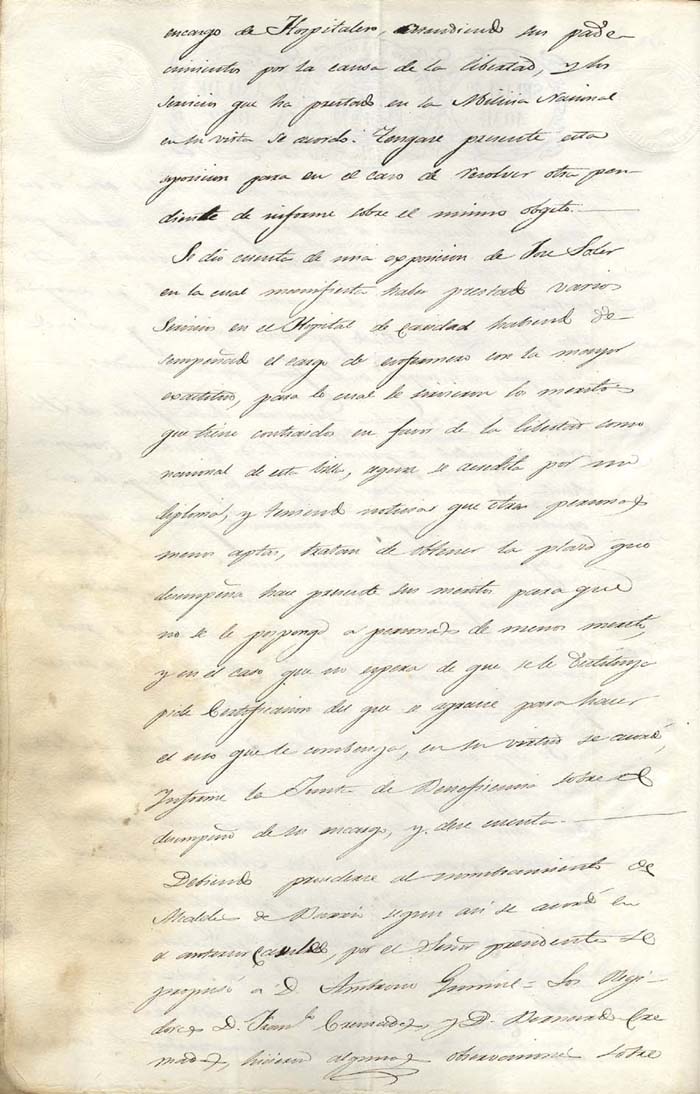 encargo de Hospitalero, atendiendo sus pade-
cimientos por la causa de la libertad, y los
servicios que ha prestado en la Milicia Nacional
en su vista se acordó: Tengase presente esta
esposicion para en el caso de resolver otra pen-
diente de informe sobre el mismo obgeto.
Se dió cuenta de una exposicion de Jose Soler
en la cual manifiesta haber prestado varios
servicios en el Hospital de Caridad habiendo de-
sempeñado el cargo de enfermero con la mayor
exactitud, para lo cual le sirvieron los meritos
que tiene contraidos en favor de la libertad como
nacional de esta Villa, segun se acredita por su
diploma, y teniendo noticias que otras personas
menos aptas, tratan de obtener la plaza que
desempeña hace presente sus meritos para que
no se le posponga a personas de menos merito,
y en el caso que no espera de que se le destituya
pide Certificacion del que se agracie para hacer
el uso que le combenga, en su virtud se acordó,
Informe la Junta de Beneficencia sobre el
desempeño de su encargo, y dese cuenta.
Debiendo procederse al nombramiento de
Alcalde de Barrio segun asi se acordó en
el anterior Cavildo, por el Señor presidente se
propuso a D. Ambrosio = Los Regi-
dores D. Franco. Cremades y D. Bernardo Cre
mades, hicieron algunas observaciones sobre